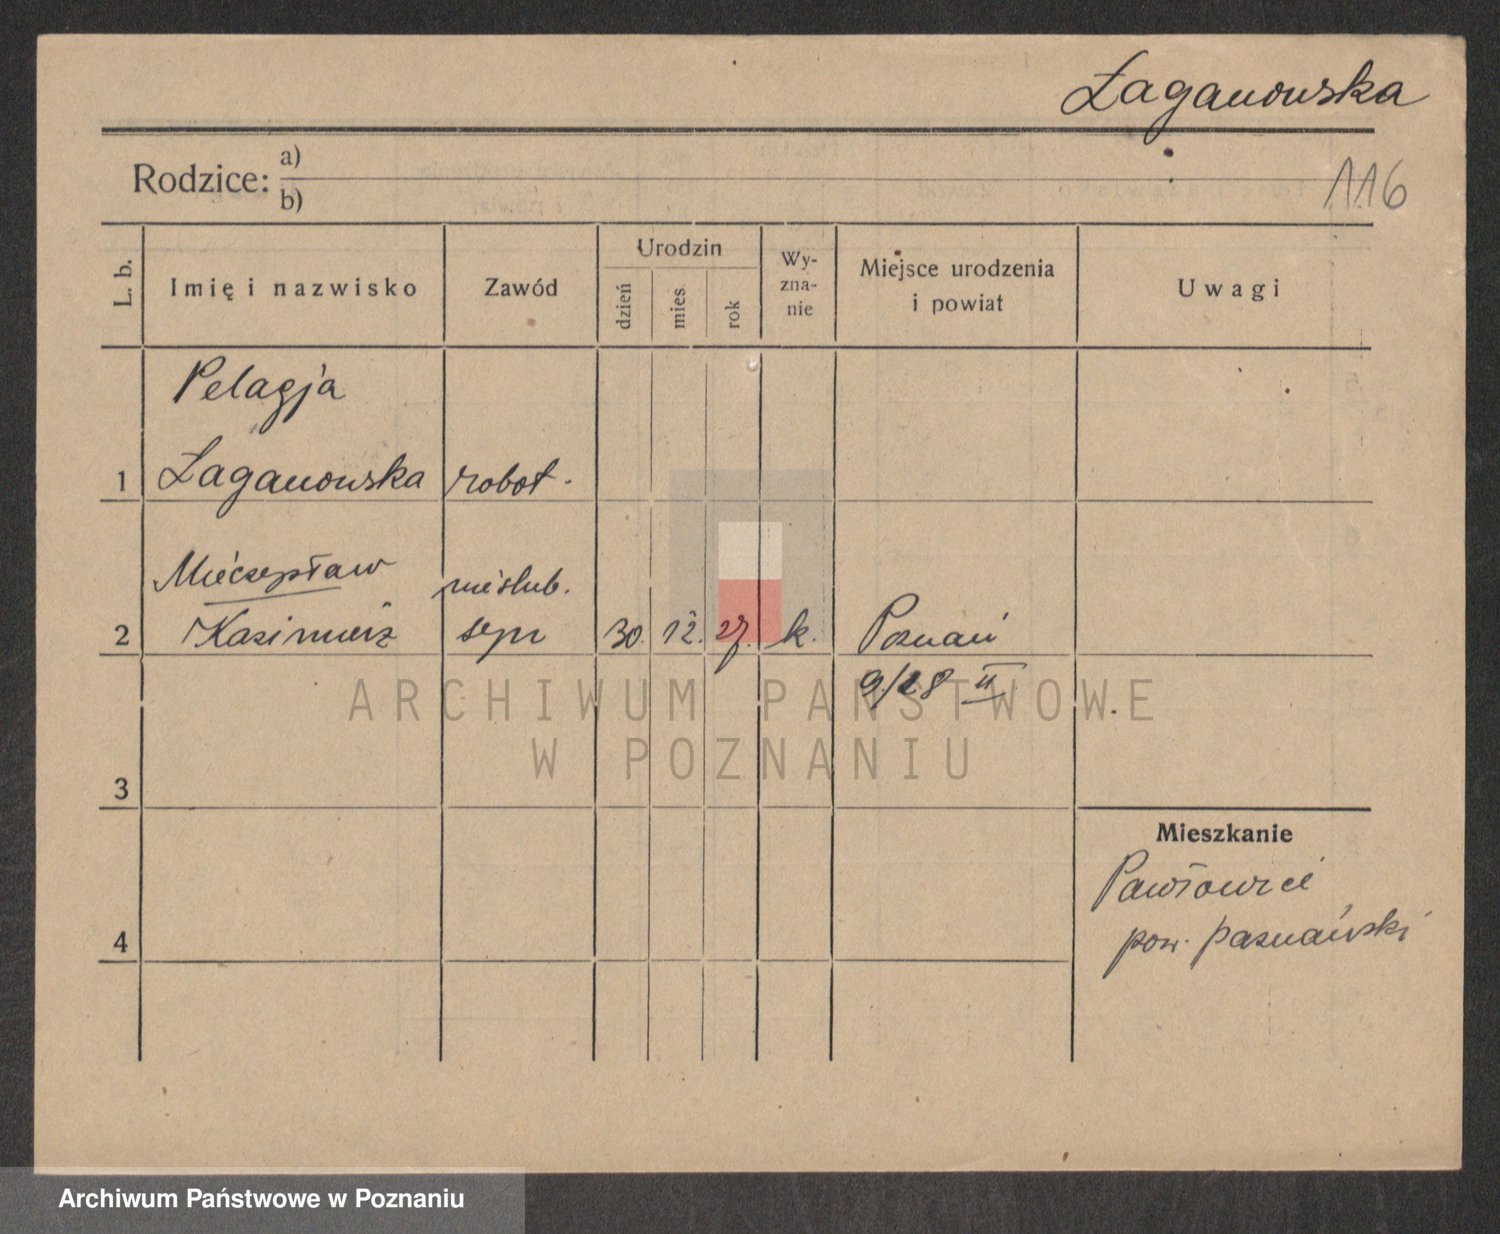 Łaganowska
Rodzice: a)
b)
116
L. b.
Imię i nazwisko
Zawód
Urodzin
dzień
mies.
rok
Wy-
zna-
nie
Miejsce urodzenia
i powiat
Uwagi
Pelagja
1 Łaganowska robot.
Mieczysław nieślub.
2 Kazimierz syn 30. 12. 27. k. Poznań
9/28 II
ARCHIWUM PAŃSTWOWE
W POZNANIU
3
Mieszkanie
Pawłowice
4 pow. poznański
Archiwum Państwowe w Poznaniu